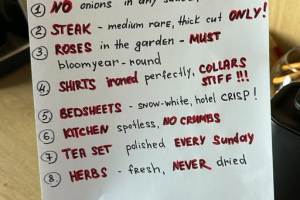 ① NO onions in any
② STEAK - medium rare, thick cut ONLY!
③ ROSES in the garden - MUST
bloomyear-round
④ SHIRTS ironed perfectly, COLLARS
STIFF!!!
⑤ BEDSHEETS - snow-white, hotel CRISP!
⑥ KITCHEN spotless, NO CRUMBS
⑦ TEA SET polished EVERY Sunday
⑧ HERBS - fresh, NEVER dried